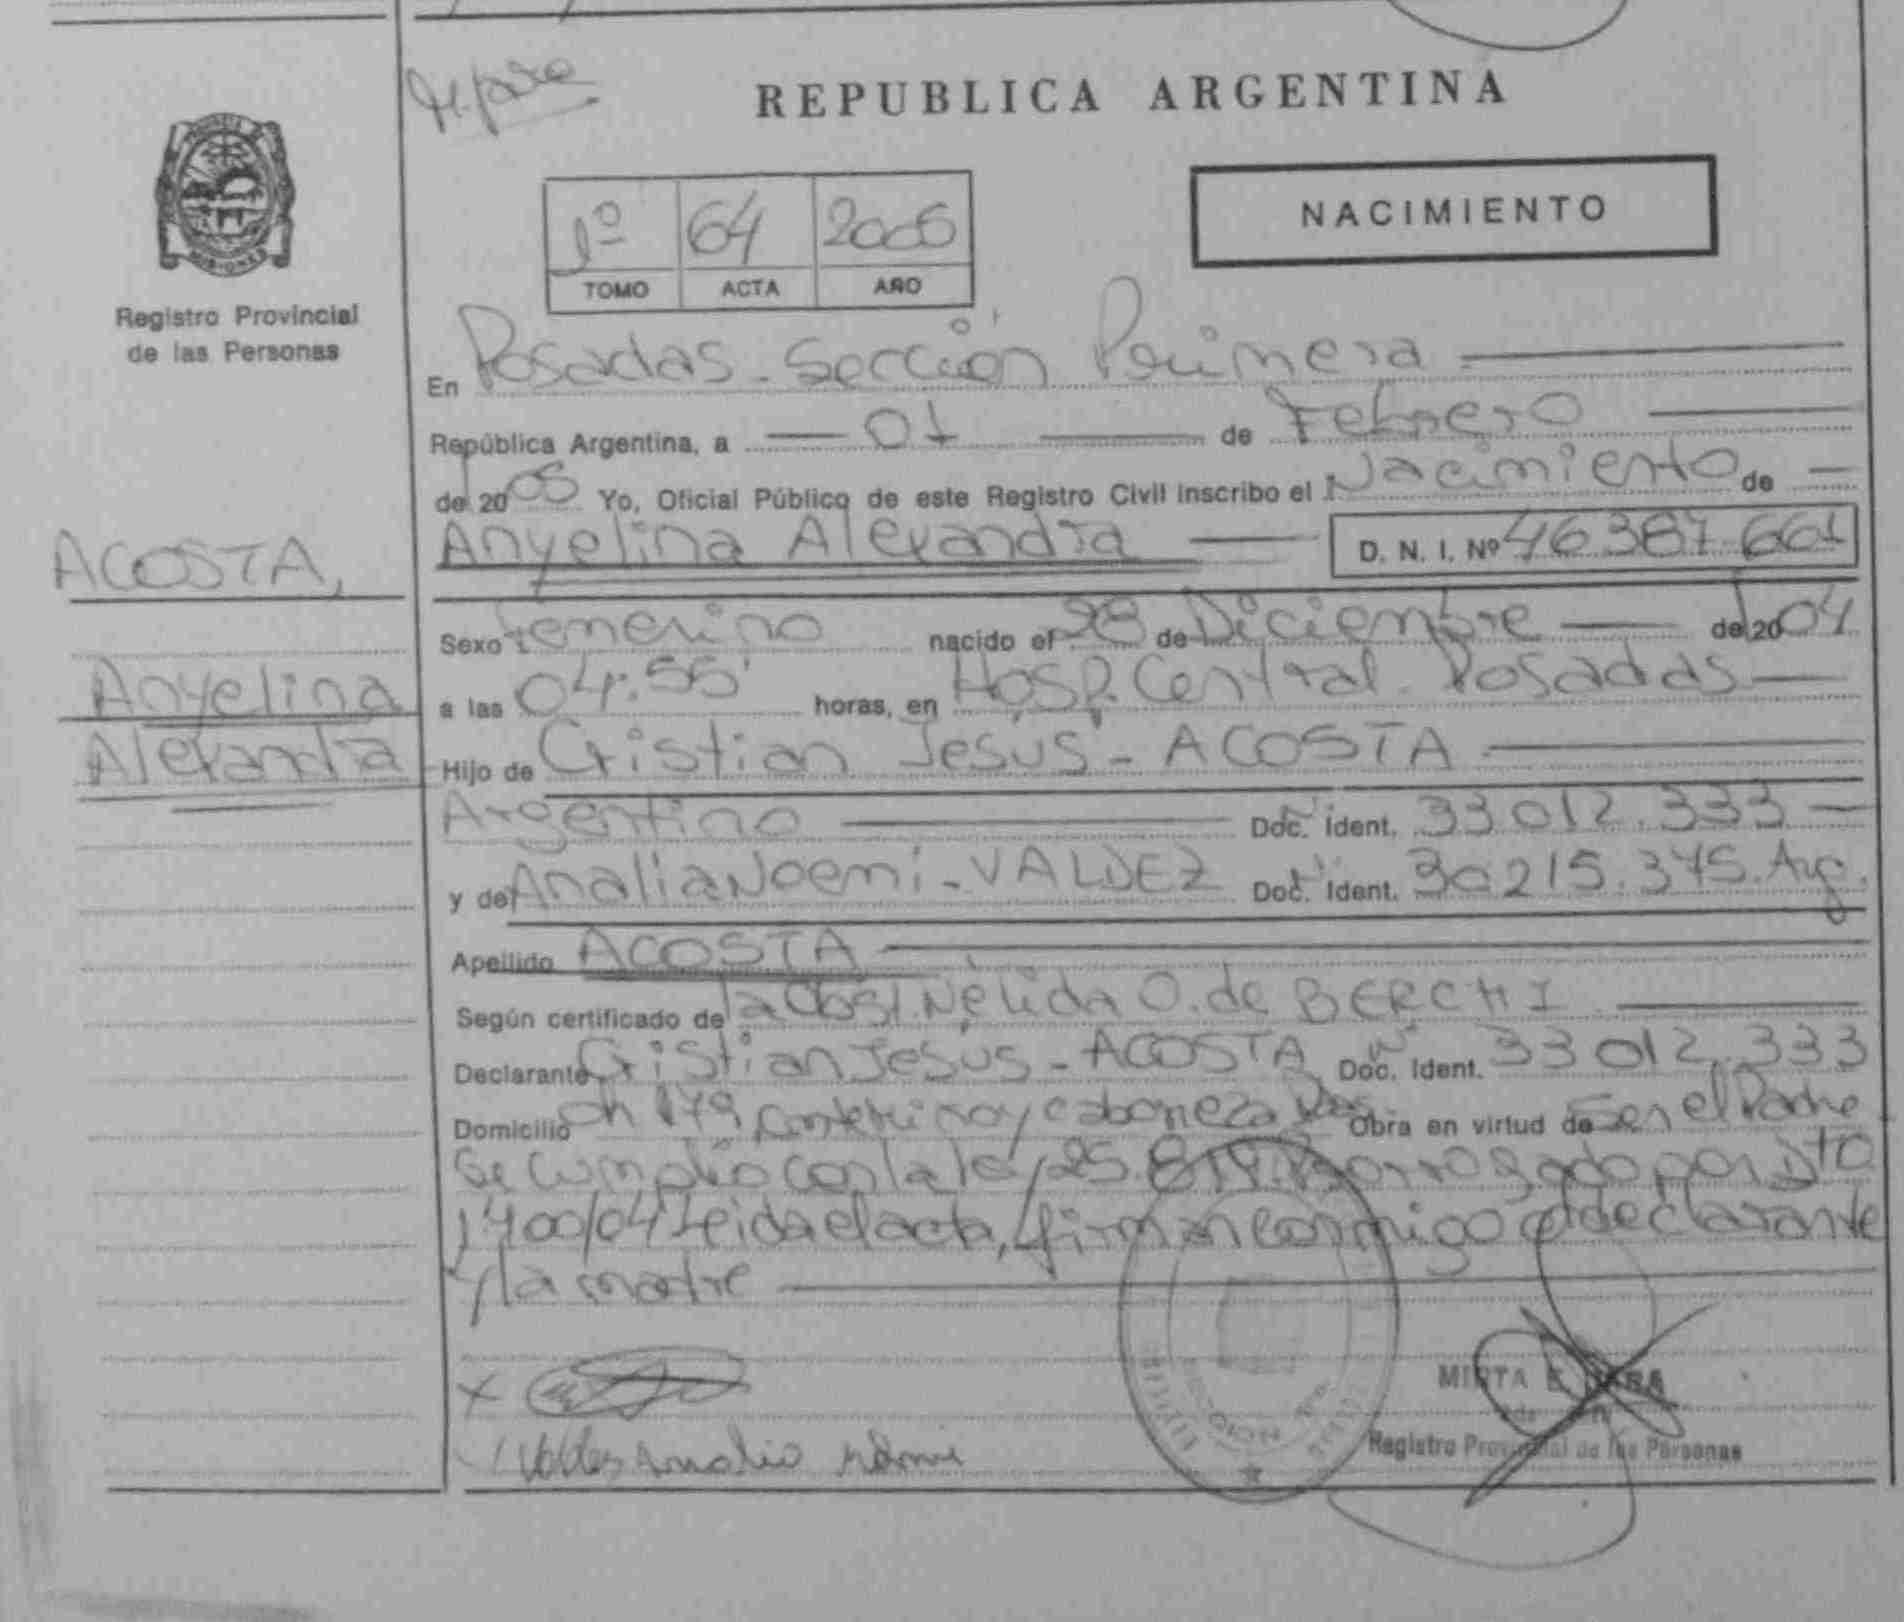 REPUBLICA ARGENTINA
NACIMIENTO
1º 64 2005
TOMO ACTA AÑO
MISIONES
Registro Provincial
de las Personas
En Posadas - Sección Primera
República Argentina, a 01 de Febrero
del 2005 Yo, Oficial Público de este Registro Civil inscribo el Nacimiento de
Anyelina Alexandra D. N. I. Nº 46 387 661
ACOSTA,
Anyelina
Alexandra
Sexo Femenino nacido el 28 de Diciembre del 2004
a las 04:55' horas, en Hosp. Central. Posadas
Hijo de Cristian Jesús - ACOSTA
Argentino Doc. Ident. 33 012.333
y de Analia Noemi - VALDEZ Doc. Ident. 30 215.375. Arg.
Apellido ACOSTA
Según certificado de la Obst. Nélida O. de BERCHI
Declarante Cristian Jesús - ACOSTA Doc. Ident. 33 012.333
Domicilio Ch 179 y cabaneza Obra en virtud de Ser el Padre
Se cumplió con la ley 25.819. por Dto
1400/04 Leida el acta, firman conmigo el declarante
y la madre
Valdez Analia Noemi
MIRTA E.
Registro Provincial de las Personas